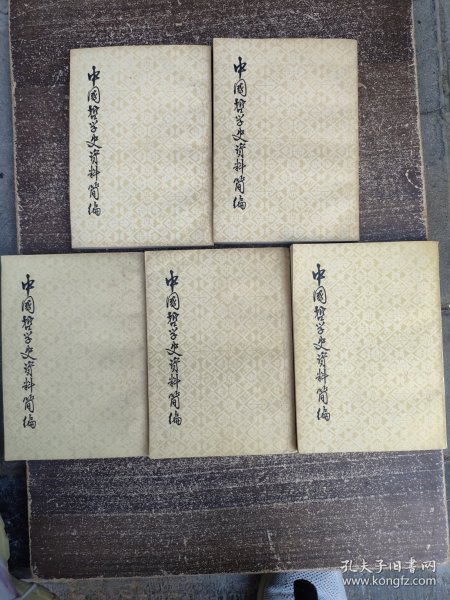 中國哲学史资料简编
中國哲学史资料简编
中國哲学史资料简编
中國哲学史资料简编
中國哲学史资料简编
孔夫子旧书网
www.kongfz.com